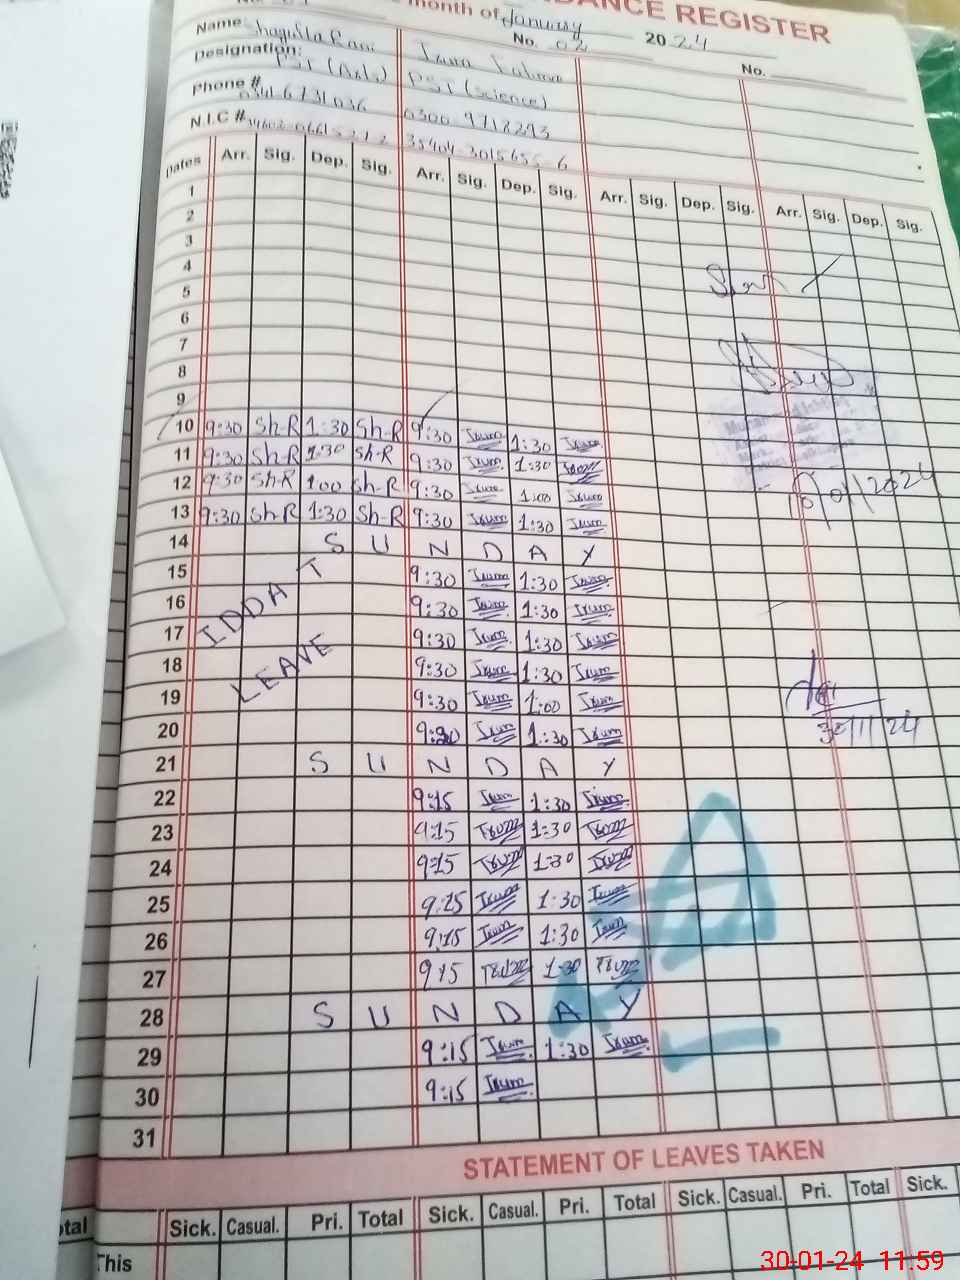 DANCE REGISTER
month of January 2024
No. 02 No.
Name Shagufta Rani Irum Fatima
Designation: PST (Arts) PST (Science)
Phone #
N.I.C #
Dates Arr. Sig. Dep. Sig. Arr. Sig. Dep. Sig. Arr. Sig. Dep. Sig. Arr. Sig. Dep. Sig.
1
2
3
4
5
6
7
8
9
10 9:30 Sh-R 1:30 Sh-R 9:30 Irum 1:30 Irum
11 9:30 Sh-R 1:30 Sh-R 9:30 Irum 1:30 Irum
12 9:30 Sh-R 1:00 Sh-R 9:30 Irum 1:00 Irum
13 9:30 Sh-R 1:30 Sh-R 9:30 Irum 1:30 Irum
14 S U N D A Y
15 9:30 Irum 1:30 Irum
16 9:30 Irum 1:30 Irum
17 9:30 Irum 1:30 Irum
18 9:30 Irum 1:30 Irum
19 9:30 Irum 1:00 Irum
20 9:30 Irum 1:30 Irum
IDDAT
LEAVE
21 S U N D A Y
22 9:15 Irum 1:30 Irum
23 9:15 Irum 1:30 Irum
24 9:15 Irum 1:30 Irum
25 9:15 Irum 1:30 Irum
26 9:15 Irum 1:30 Irum
27 9:15 Irum 1:30 Irum
28 S U N D A Y
29 9:15 Irum 1:30 Irum
30 9:15 Irum
31
STATEMENT OF LEAVES TAKEN
otal Sick. Casual. Pri. Total Sick. Casual. Pri. Total Sick. Casual. Pri. Total Sick.
This
30-01-24 11:59